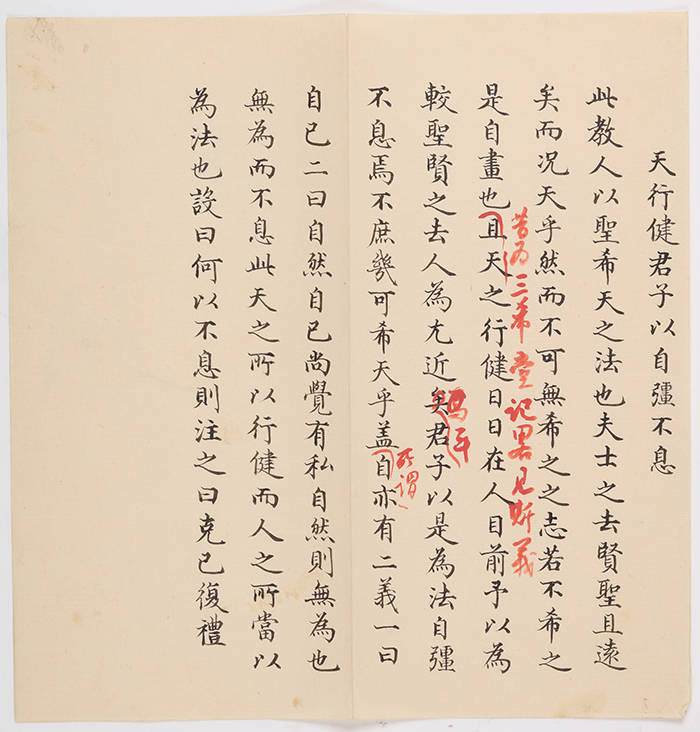 天行健君子以自彊不息
此教人以聖希天之法也夫士之去賢聖且遠
矣而况天乎然而不可無希之之志若不希之
昔為三希堂記畧見斯義
是自畫也且天之行健日日在人目前予以為
焉耳
較聖賢之去人為尤近矣君子以是為法自彊
所謂
不息焉不庶幾可希天乎盖自亦有二義一曰
自己二曰自然自己尚覺有私自然則無為也
無為而不息此天之所以行健而人之所當以
為法也設曰何以不息則注之曰克己復禮